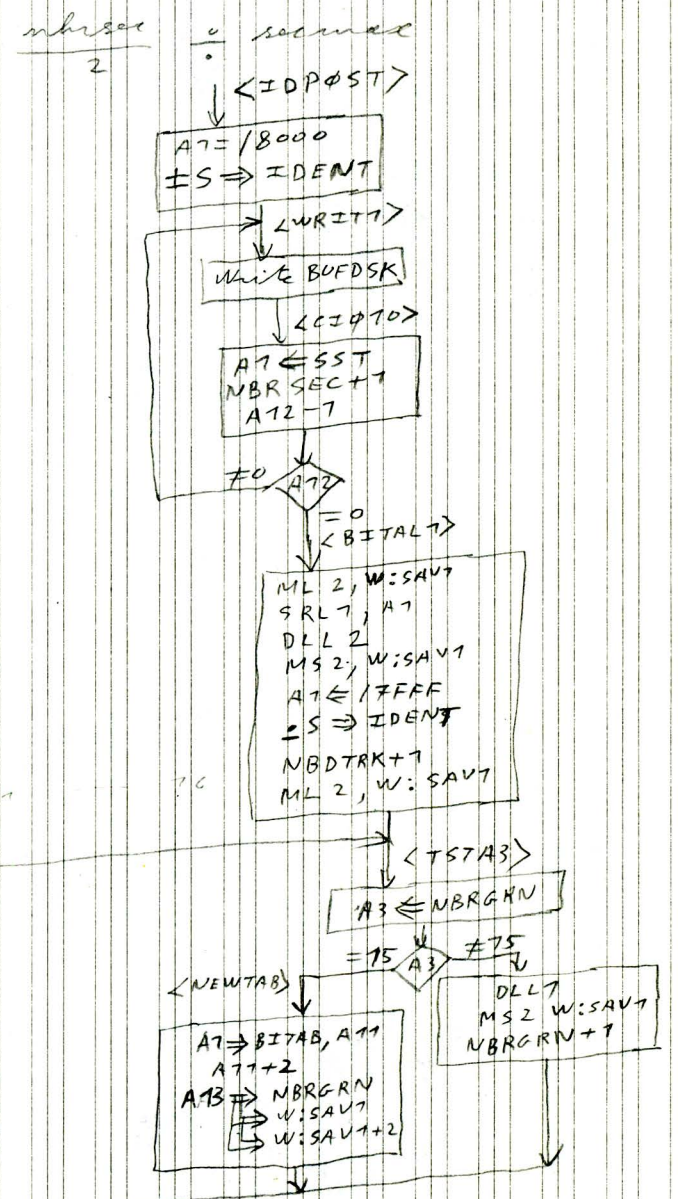 nbrsec ÷ secmax
2
<IDPØST>
A1=/8000
±S ⇒ IDENT
<WRIT1>
Write BUFDSK
<CIØ10>
A1 ⇐ SST
NBRSEC+1
A12-1
≠0 A12
=0
<BITAL1>
ML 2, W:SAV1
SRL1, A1
DLL 2
MS2, W:SAV1
A1 ⇐ /7FFF
±S ⇒ IDENT
NBDTRK+1
ML 2, W:SAV1
<TSTA3>
A3 ⇐ NBRGRN
=15 A3 ≠15
<NEWTAB>
DLL1
MS2 W:SAV1
NBRGRN+1
A1 ⇒ BITAB, A11
A11+2
A13 ⇒ NBRGRN
⇒ W:SAV1
⇒ W:SAV1+2